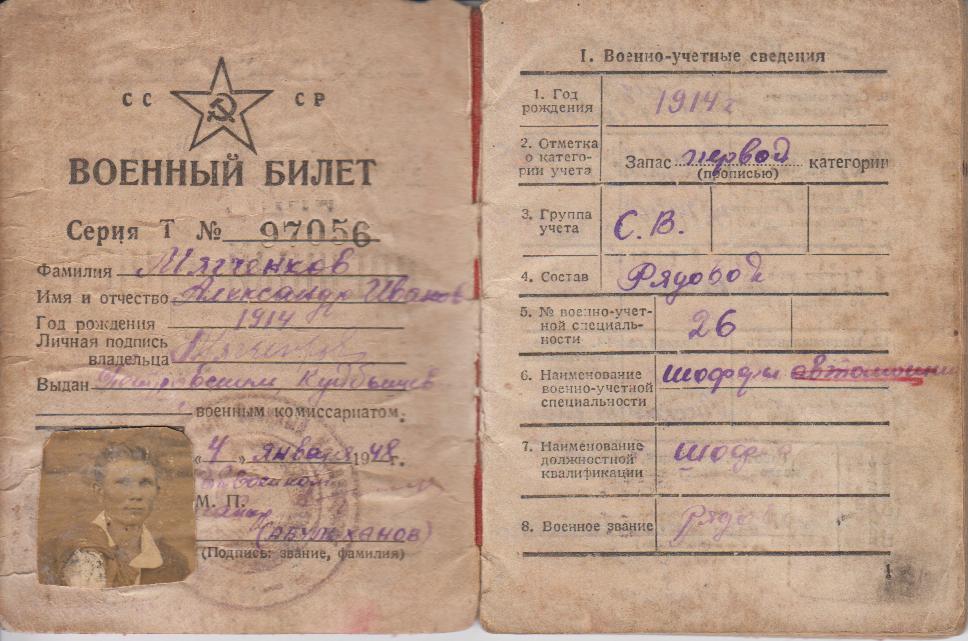 СС СР
ВОЕННЫЙ БИЛЕТ
Серия Т № 97056
Фамилия Мягченков
Имя и отчество Александр Иванов
Год рождения 1914
Личная подпись
владельца
Выдан
военным комиссариатом.
«4» января 1948 г.
М. П.
(Подпись: звание, фамилия)
I. Военно-учетные сведения
1. Год
рождения
1914 г
2. Отметка
о катего-
рии учета
Запас первой категории
(прописью)
3. Группа
учета
С.В.
4. Состав Рядовой
5. № военно-учет-
ной специаль-
ности
26
6. Наименование
военно-учетной
специальности
шоффер
7. Наименование
должностной
квалификации
шофер
8. Военное звание рядов
1